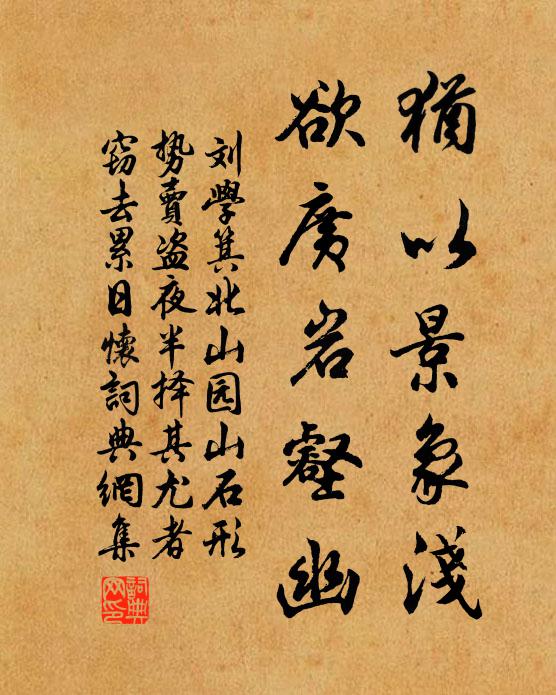 猶以景象淺
欲廣岩壑幽
刘學箕北山园山石形
势賣盗夜半择其尤者
窃去累日懷詞典網集
詞典网印